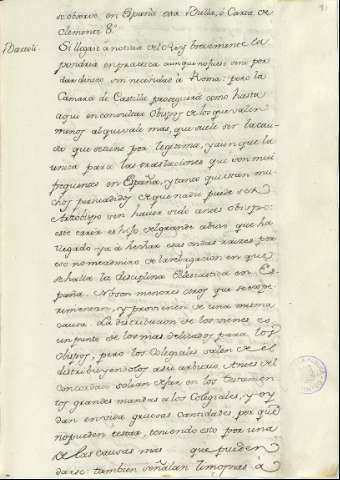 se observe en España esta Bulla, ó Carta de
Clemente 8º
Si llegáre à noticia del Rey brevemente la
pondria en practica aunque no fuese sino por
dar dinero sin necesidad à Roma: pero la
Camara de Castilla proseguirá como hasta
aqui en consultar Obispos de los que valen
menos al que vale mas, que suele ser la cau-
sa que se tiene por legitima, y aun que la
unica para las traslaciones que son mui
freqüentes en España, y tanto que estan mu-
chos persuadidos de que nadie puede ser
Arzobispo sin haver sido antes obispo:
este error es hijo del grande abuso que ha
llegado ya à hechar tan ondas raizes por
eso no me admiro de la relaxacion en que
se halla la disciplina Eclesiastica en Es-
paña. No son menores otros que se expe-
rimentan, y provienen de una misma
causa. La distribucion de los bienes es
un punto de los mas delicados para los
Obispos, pero los Colegiales salen de él
distribuyendolos à su arbitrio. Antes del
Concordato solian dejar en los Testamen-
tos grandes mandas a los Colegiales, y oy
dan en vida gruesas cantidades por que
no pueden testar, teniendo esto por una
de las causas mas que pueden
darse: tambien señalan limosnas à